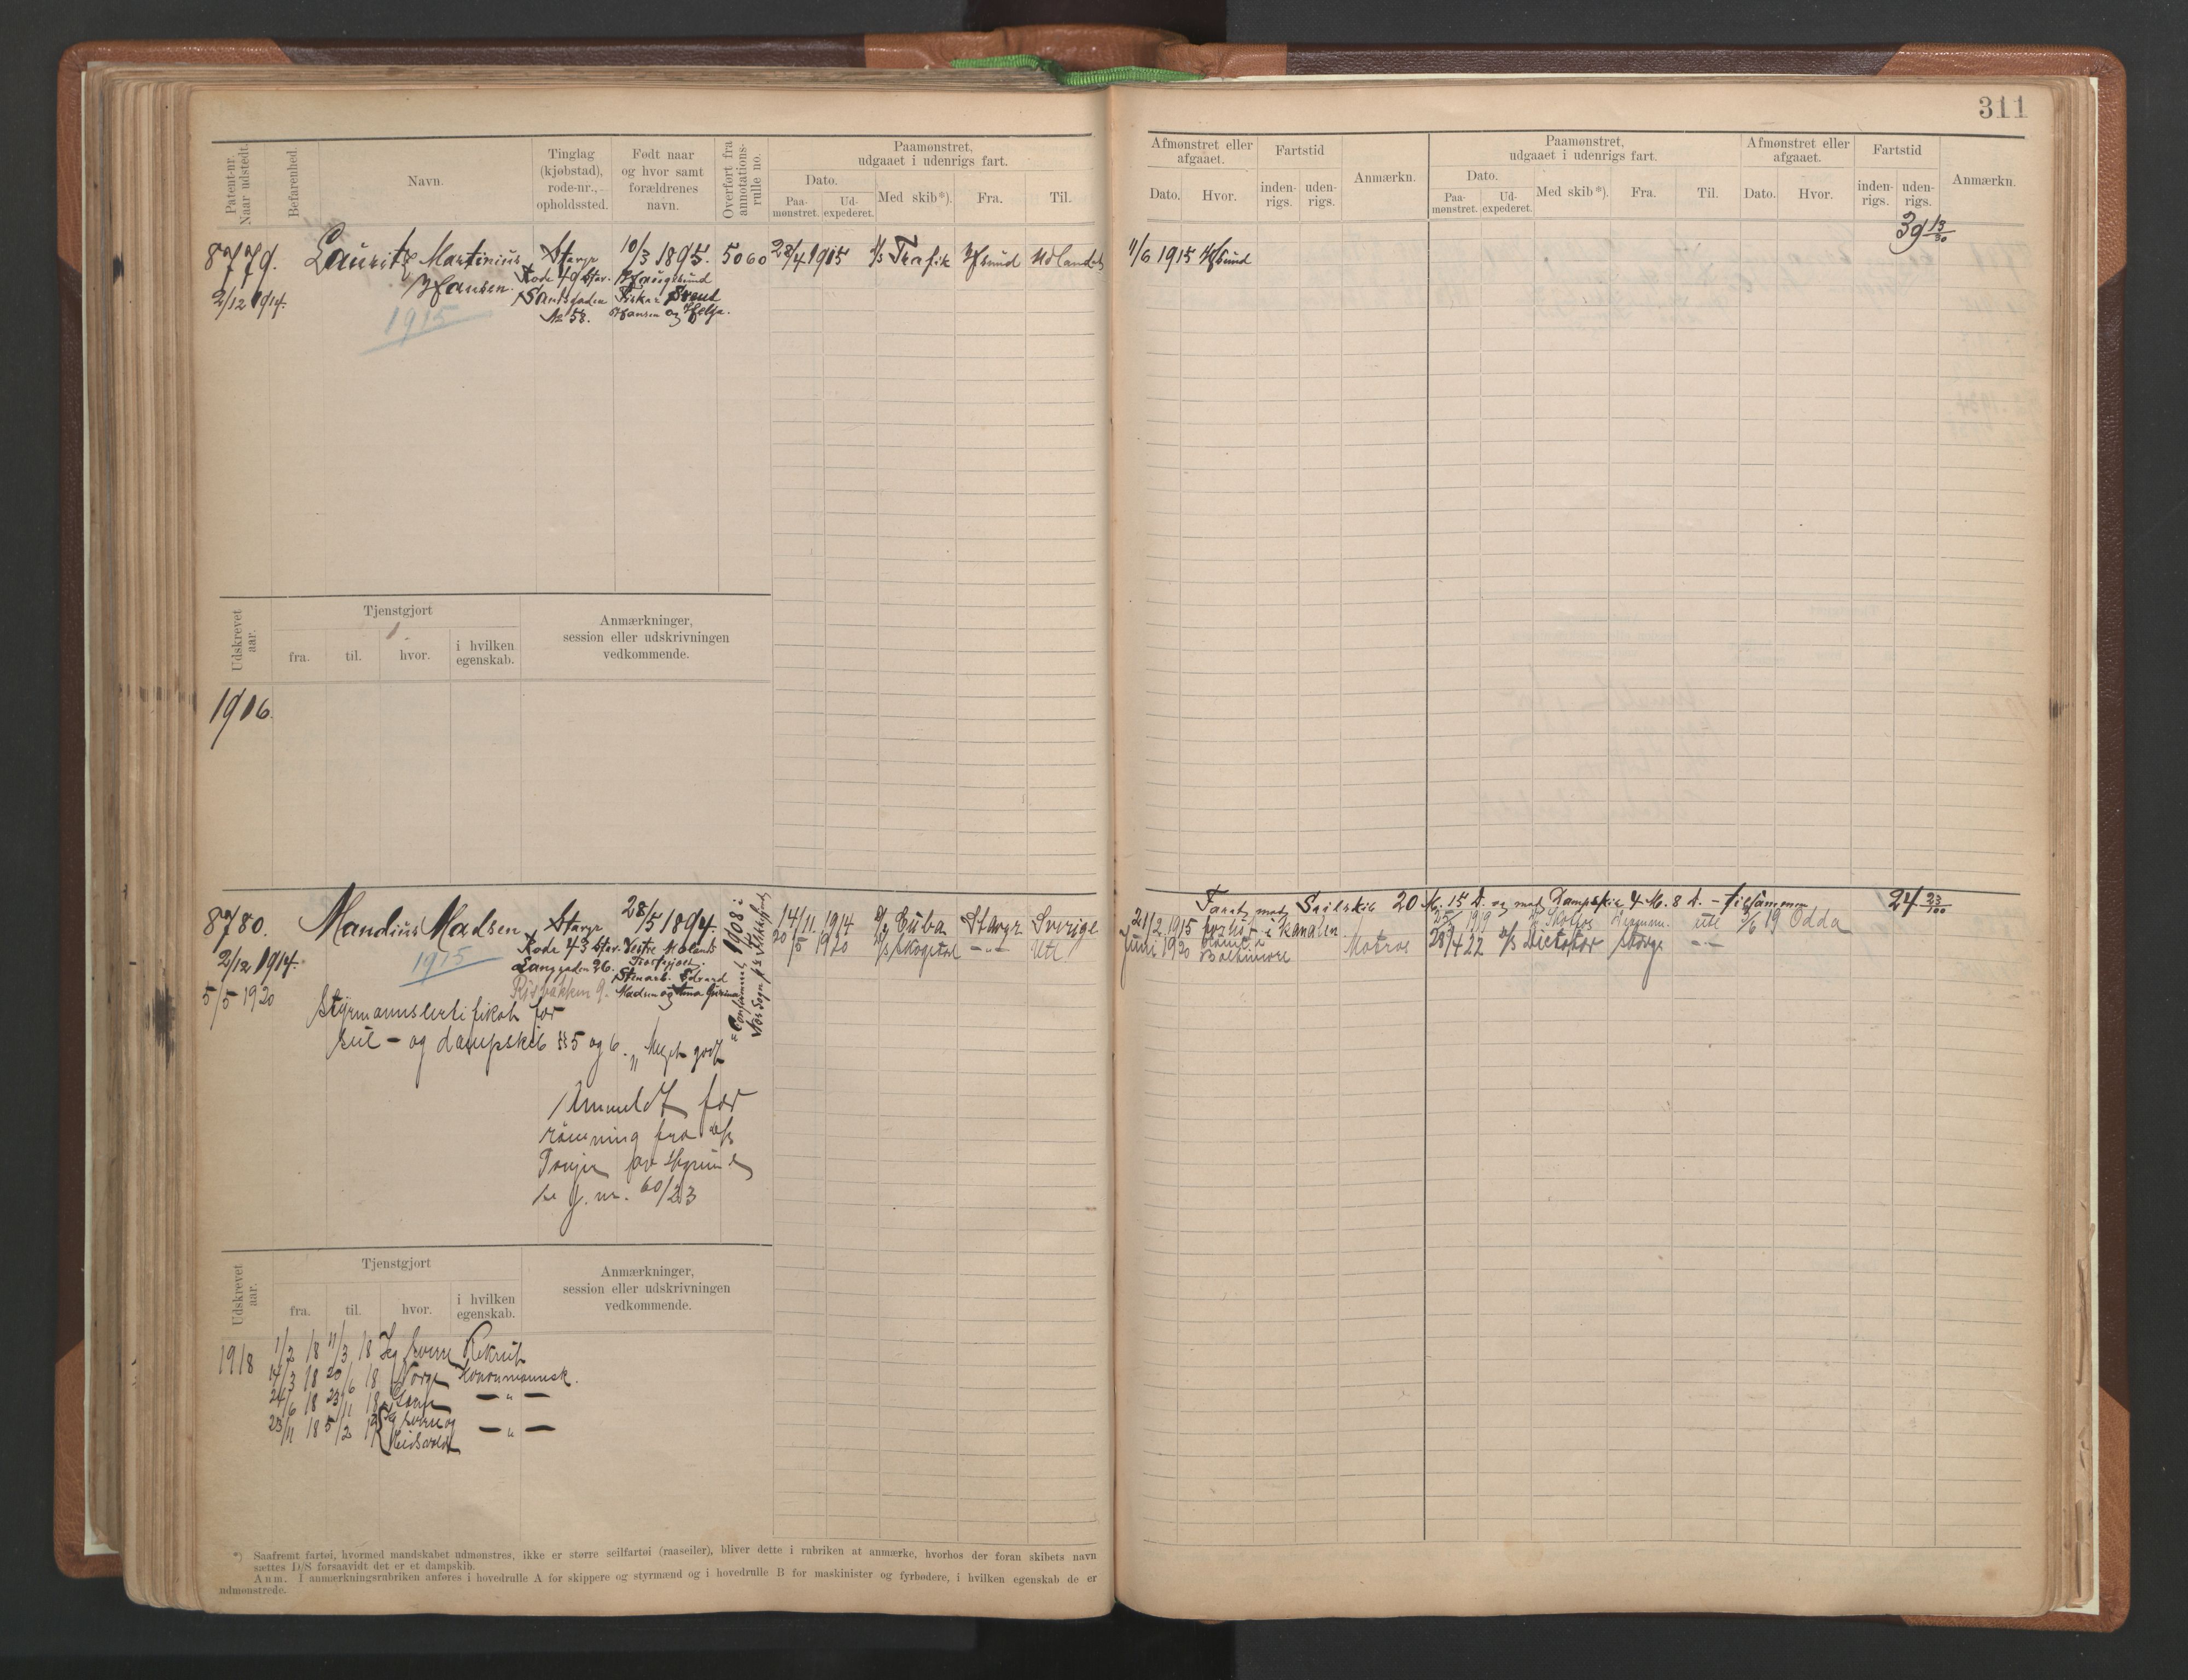 311
Patent-nr. Naar udstedt.
Befarenhed.
Navn.
Tinglag (kjøbstad), rode-nr., opholdssted.
Født naar og hvor samt forældrenes navn.
Overført fra annotations-rulle no.
Paamønstret, udgaaet i udenrigs fart.
Dato.
Paa-mønstret.
Ud-expederet.
Med skib*).
Fra.
Til.
Afmønstret eller afgaaet.
Dato.
Hvor.
Fartstid
inden-rigs.
uden-rigs.
Anmærkn.
Paamønstret, udgaaet i udenrigs fart.
Dato.
Paa-mønstret.
Ud-expederet.
Med skib*).
Fra.
Til.
Afmønstret eller afgaaet.
Dato.
Hvor.
Fartstid
inden-rigs.
uden-rigs.
Anmærkn.
39 13/30
8779. Lauritz Martinius Stavgr 10/3 1895. 5060 28/4 1915 Trafik Hsund Udlandet 11/6 1915 Hsund
2/12 1914. Hansen. Rode 49 Stav. Haugesund
Sandsgaden Fisker Svend
№ 58. Hansen og Helga.
1915
Udskrevet aar.
Tjenstgjort
fra.
til.
hvor.
i hvilken egenskab.
Anmærkninger, session eller udskrivningen vedkommende.
1916.
8780. Mandius Madsen Stavgr 28/5 1894. 14/11 1914 Cuba Stavgr Sverige
2/12 1914. Rode 43 Stav. Vestre Molands
1915 Langgaden 26.
5/5 1920
Madsen og
20/5 1920 Skogstad -"- Utl
Faret med Seilskib 20 M. 15 D. og med Dampskib 4 M. 8 D. - tilsammen 24 23/100
21/2 1915 forlist i Kanalen 1919 utl 3/6 19 Odda
Juni 1920 Baltimore Matros 28/4 22 Dictator Stavgr -"-
Styrmannscertifikat for
seil- og dampskib §§ 5 og 6. „Meget godt
Anmeldt for
rømning fra
av Hgesund
se j. nr. 60/23
Udskrevet aar.
Tjenstgjort
fra.
til.
hvor.
i hvilken egenskab.
Anmærkninger, session eller udskrivningen vedkommende.
1918 1/2 18 11/3 18 Sverre Rekrut
14/3 18 20/6 18 Norge
24/6 18 23/11 18 -"-
23/11 18 5/2 19 Sverre og -"-
Eidsvold
*) Saafremt fartøi, hvormed mandskabet udmønstres, ikke er større seilfartøi (raaseiler), bliver dette i rubriken at anmærke, hvorhos der foran skibets navn
sættes D/S forsaavidt det er et dampskib.
Anm. I anmærkningsrubriken anføres i hovedrulle A for skippere og styrmænd og i hovedrulle B for maskinister og fyrbødere, i hvilken egenskab de er
udmønstrede.